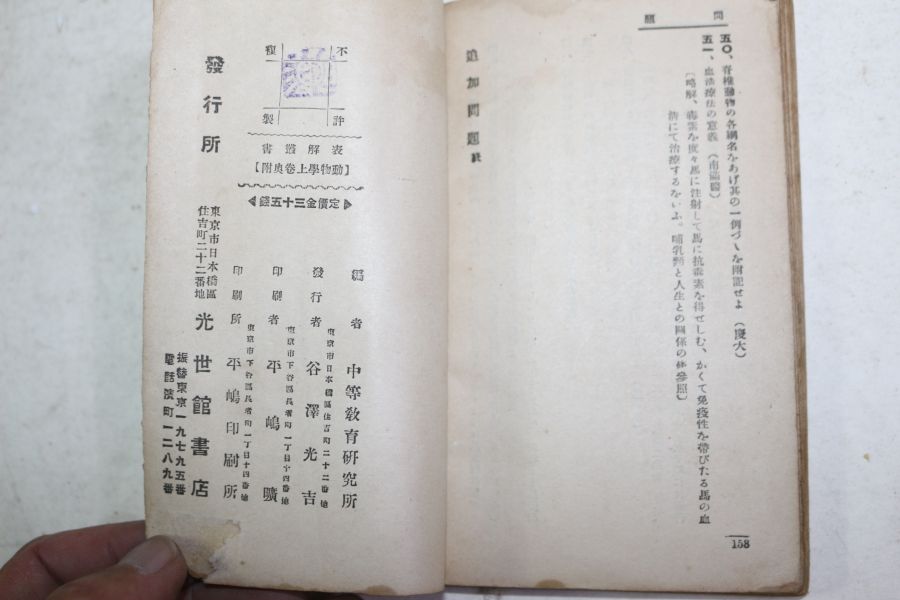 問題
五〇、脊椎動物の各綱名をあげ其の一例づゝを附記せよ (慶大)
五一、血清療法の意義 (南滿醫)
〔略解、毒素を度々馬に注射して馬に抗毒素を得せしむ、かくて免疫性を帶びたる馬の血
清にて治療するをいふ。哺乳類と人生との關係の條參照〕
追加問題 終
158
不許
複製
表解叢書
【動物學上卷奥附】
定價金三十五錢
編者 中等敎育硏究所
東京市日本橋區住吉町二十二番地
發行者 谷澤光吉
東京市下谷區長者町一丁目十四番地
印刷者 平嶋曠
東京市下谷區長者町一丁目十四番地
印刷所 平嶋印刷所
東京市日本橋區
住吉町二十二番地
發行所 光世館書店
振替東京一九七九五番
電話濱町一二八九番